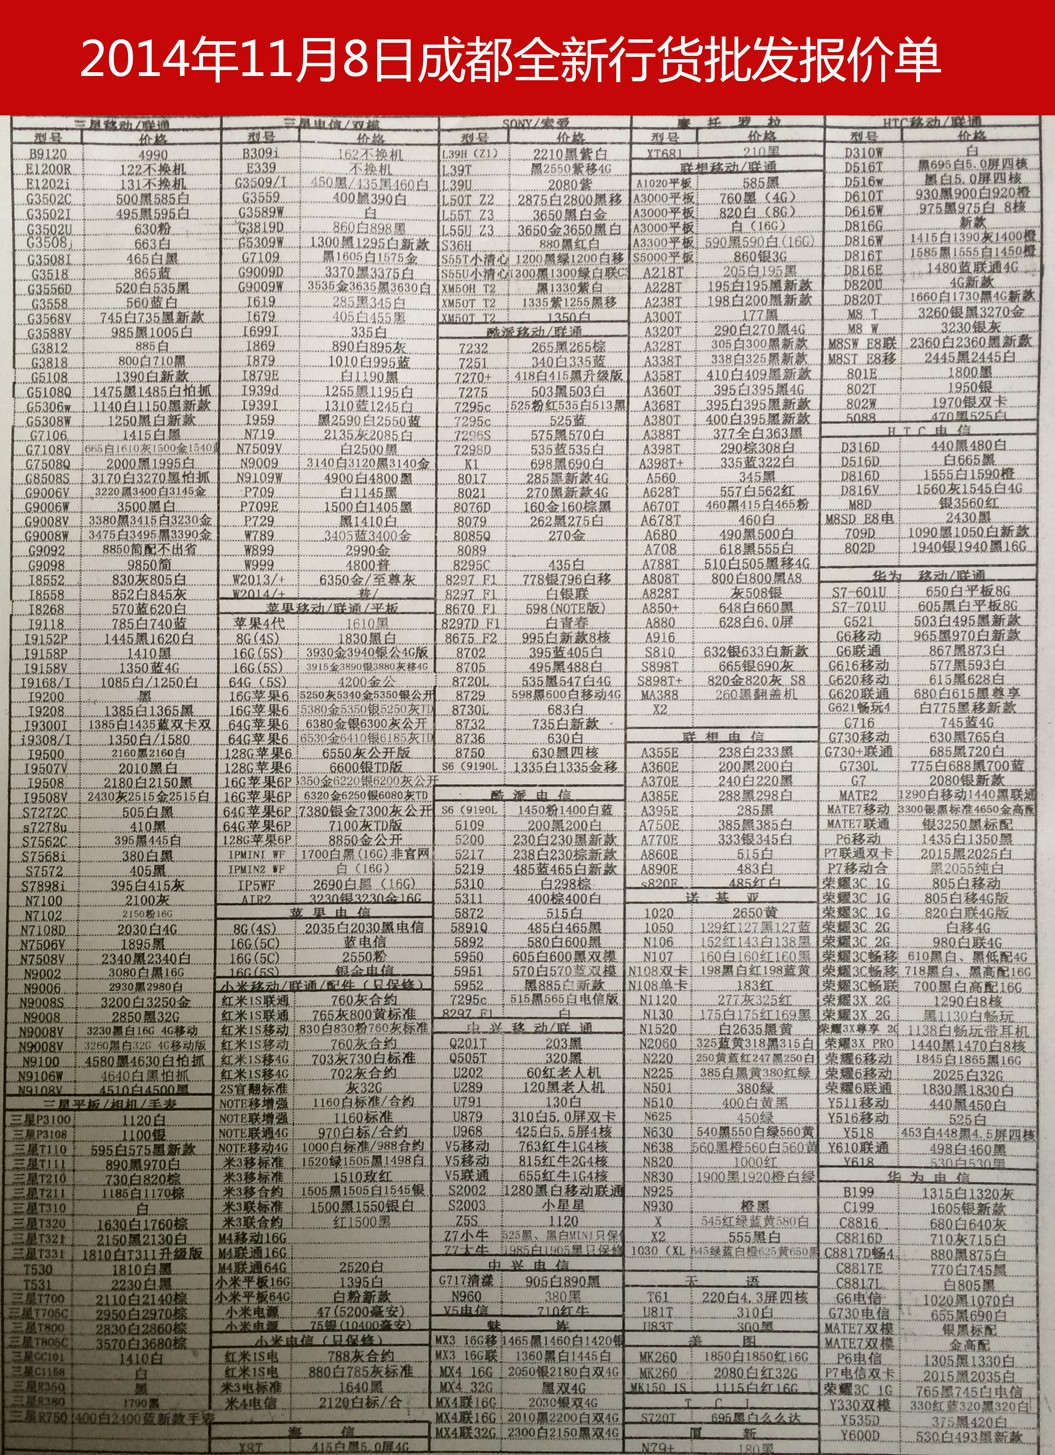 2014年11月8日成都全新行货批发报价单
三星移动/联通
型号 价格
B9120 4990
E1200R 122不换机
E1202i 131不换机
G3502C 500黑585白
G3502I 495黑595白
G3502U 630粉
G3508j 663白
G3508I 465白黑
G3518 865蓝
G3556D 520白535黑
G3558 560蓝白
G3568V 745白735黑新款
G3588V 985黑1005白
G3812 885白
G3818 800白710黑
G5108 1390白新款
G5108Q 1475黑1485白怕抓
G5306w 1140白1150黑新款
G5308W 1250黑白新款
G7106 1415白黑
G7108V
G7508Q 2000黑1995白
G8508S 3170白3270黑怕抓
G9006V 3220黑3400白3145金
G9006W 3500黑白
G9008V 3380黑3415白3230金
G9008W 3475白3495黑3390金
G9092 8850简配不出省
G9098 9850简
I8552 830灰805白
I8558 852白845灰
I8268 570蓝620白
I9118 785白740蓝
I9152P 1445黑1620白
I9158P 1410黑
I9158V 1350蓝4G
I9168/I 1085白/1250白
I9200 黑
I9208 1385白1365黑
I9300I 1385白1435蓝双卡双
i9308/I 1350白/1580
I9500 2160黑2160白
I9507V 2010黑白
I9508 2180白2150黑
I9508V 2430灰2515金2515白
S7272C 505白黑
s7278u 410黑
S7562C 395黑445白
S7568i 380白黑
S7572 405黑
S7898i 395白415灰
N7100 2100灰
N7102 2150粉16G
N7108D 2030白4G
N7506V 1895黑
N7508V 2340黑2340白
N9002 3080白黑16G
N9006 2930黑2980白
N9008S 3200白3250金
N9008 2850黑32G
N9008V 3230黑白16G 4G移动
N9008V 3260黑白32G 4G移动版
N9100 4580黑4630白怕抓
N9106W 4640白黑怕抓
N9108V 4510白4500黑
三星平板/相机/手表
三星P3100 1120白
三星P3108 1100银
三星T110 595白575黑新款
三星T111 890黑970白
三星T210 730白820棕
三星T211 1185白1170棕
三星T310 白
三星T320 1630白1760棕
三星T321 2150黑2130白
三星T331 1810白T311升级版
T530 1810白黑
T531 2230白黑
三星T700 2110白2140棕
三星T705C 2950白2970棕
三星T800 2830白2860棕
三星T805C 3570白3680棕
三星GC101 1410白
三星C1158 白
三星R350 黑
三星R380 1790黑
三星R750 2400白2400蓝新款手表
三星电信/双模
型号 价格
B309i 162不换机
E339 不换机
G3509/I 450黑/435黑460白
G3559 400黑390白
G3589W 白
G3819D 860白898黑
G5309W 1300黑1295白新款
G7109 黑1605白1575金
G9009D 3370黑3375白
G9009W 3535金3635黑3630白
I619 285黑345白
I679 405白455黑
I699I 335白
I869 890白895灰
I879 1010白995蓝
I879E 白1190黑
I939d 1255黑1195白
I939I 1310蓝1245白
I959 黑2590白2550蓝
N719 2135灰2085白
N7509V 白2500黑
N9009 3140白3120黑3140金
N9109W 4900白4800黑
P709 白1145黑
P709E 1500白1405黑
P729 黑1410白
W789 3405蓝3400金
W899 2990金
W999 4800普
W2013/+ 6350金/至尊灰
W2014/+ 普/
苹果移动/联通/平板
苹果4代 1610黑
8G(4S) 1830黑白
16G(5S) 3930金3940银公4G版
16G(5S) 3915金3890银3880灰移4G
64G (5S) 4200金公
16G苹果6 5250灰5340金5350银公开
16G苹果6 5380金5350银5250灰TD
64G苹果6 6380金银6300灰公开
64G苹果6 6530金6410银6185灰TD
128G苹果6 6550灰公开版
128G苹果6 6600银TD版
16G苹果6P 6350金6220银6200灰公开
16G苹果6P 6320金6250银6080灰TD
64G苹果6P 7380银金7300灰公开
64G苹果6P 7100灰TD版
128G苹果6P 8850金公开
IPMINI WF 1700白黑(16G)非官网
IPMIN2 WF 白 (16G)
IP5WF 2690白黑 (16G)
AIR2 3230银3230金16G
苹果电信
8G(4S) 2035白2030黑电信
16G(5C) 蓝电信
16G(5C) 2550粉
16G(5S) 银金电信
小米移动/联通/配件(只保修)
红米1S联通 760灰合约
红米1S联通 765灰800黄标准
红米1S移动 830白830粉760灰标准
红米1S移动 760灰合约
红米1S移4G 703灰730白标准
红米1S移4G 702灰合约
2S官翻标准 灰32G
NOTE移增强 1160白标准/合约
NOTE联增强 1160标准
NOTE联通4G 970白标/合约
NOTE移动4G 1000白标准/988合约
米3移标准 1520绿1505黑1498白
米3移标准 1510玫红
米3移合约 1505黑1505白1545银
米3联标准 1500黑1550银白
米3联合约 红1500黑
M4移动16G
M4联通16G
M4联通64G 2520白
小米平板16G 1395白
小米平板64G 白粉新款
小米电源 47(5200毫安)
小米电源 75银(10400毫安)
小米电信(只保修)
红米1S电 788灰合约
红米1S电 880白785灰标准
米3电标准 1640黑
米4电信 2120白标/合
海信
X8T 415白黑5.0屏4G
SONY/索爱
型号 价格
L39H (Z1) 2210黑紫白
L39T 黑2550紫移4G
L39U 2080紫
L50T Z2 2875白2800黑移
L55T Z3 3650黑白金
L55U Z3 3650金3650黑白
S36H 880黑红白
S55T小清心 1200黑绿1200白移
S55U小清心
XM50H T2 黑1330紫白
XM50T T2 1335紫1255黑移
XM50T T2 1350白
酷派移动/联通
7232 265黑265棕
7251 340白335蓝
7270+ 418白415黑升级版
7275 503黑503白
7295c 525粉红535白513黑
7295c 525蓝
7296S 575黑570白
7298D 535蓝535白
K1 698黑690白
8017 285黑新款4G
8021 270黑新款4G
8076D 160金160棕黑
8079 262黑275白
8085Q 270金
8089
8295C 435白
8297 F1 778银796白移
8297 F1 白银联
8670 F1 598(NOTE版)
8297D F1 白青春
8675 F2 995白新款8核
8702 395蓝405白
8705 495黑488白
8720L 535黑547白4G
8729 598黑600白移动4G
8730L 683白
8732 735白新款
8736 630白
8750 630黑四核
S6 (9190L 1335白1335金移
酷派电信
S6 (9190L 1450粉1400白蓝
5109 200黑200白
5200 230白230黑新款
5217 238白230棕新款
5219 485蓝465白新款
5310 白298棕
5311 400棕400白
5872 515白
5891Q 485白465黑
5892 580白600黑
5950 605白600黑双模
5951 570白570蓝双模
5952 黑885白新款
7295c 515黑565白电信版
8297 F1 白
中兴移动/联通
Q201T 203黑
Q505T 320黑
U202 60红老人机
U289 120黑老人机
U791 130白
U879 310白5.0屏双卡
U968 425白5.5屏4核
V5移动 763红牛1G4核
V5移动 815红牛2G4核
V5联通 655红牛1G4核
S2002 1280黑白移动联通
S2003 小星星
Z5S 1120
Z7小牛 1525黑、黑白MINI只保修
Z7大牛 1985白1905黑只保修
中兴电信
G717清漾 905白890黑
N960 380黑
V5电信 710红牛
魅族
MX3 16G移 1465黑1460白1420银
MX3 16G联 1360黑白1445白
MX4 16G 2050银2180白双4G
MX4 32G 黑双4G
MX4联16G 2030银双4G
MX4联16G 2010黑2200白双4G
MX4联32G 2300白2150黑双4G
摩托罗拉
型号 价格
XT681 210黑
联想移动/联通
A1020平板 585黑
A3000平板 760黑 (4G)
A3000平板 820白 (8G)
A3000平板 白 (16G)
A3300平板 590黑590白(16G)
S5000平板 860银3G
A218T 205白195黑
A228T 195白195黑新款
A238T 198白200黑新款
A300T 177黑
A320T 290白270黑4G
A328T 305白300黑新款
A338T 338白325黑新款
A358T 410白409黑新款
A360T 395白395黑4G
A368T 395白395黑新款
A380T 400白395黑新款
A388T 377全白363黑
A398T 290棕308白
A398T+ 335蓝322白
A560 345黑
A628T 557白562红
A670T 460黑415白465粉
A678T 460白
A680 490黑500白
A708 618黑555白
A788T 510白505黑移4G
A808T 800白800黑A8
A828T 灰508银
A850+ 648白660黑
A880 628白6.0屏
A916
S810 632银633白新款
S898T 665银690灰
S898T+ 820金820灰 S8
MA388 260黑翻盖机
X2
联想电信
A355E 238白233黑
A360E 200黑200白
A370E 240白220黑
A385E 288黑298白
A395E 285黑
A750E 385黑385白
A770E 333银345白
A860E 515白
A890E 483白
s820E 485红白
诺基亚
1020 2650黄
1050 129红127黑127蓝
N106 152红143白138黑
N107 160白160红160黑
N108双卡 198黑白红198蓝黄
N108单卡 183红
N1120 277灰325红
N130 175白175红169黑
N1520 白2635黑黄
N2060 325蓝黄318黑315白
N220 250黄蓝红247黑250白
N225 385白黑黄380红绿
N501 380绿
N510 400白黄黑
N625 450绿
N630 540黑550白绿560黄
N638 560黑橙560白560黄
N820 1000红
N830 1900黑1920橙白绿
N925
N930 橙黑
X 545红绿蓝黄580白
X2 555黑白
1030 (XL 645绿蓝白橙625黄650黑
天语
T61 220白4.3屏四核
U81T 310白
U83T 300黑
美图
MK260 1850白1850红16G
MK260 2080白红32G
MK150 1S 1115白红16G
TCL
S720T 695黑白么么达
厦新
N79+ 180黑
HTC移动/联通
型号 价格
D310W 白
D516T 黑695白5.0屏四核
D516w 黑白5.0屏四核
D610T 930黑900白920橙
D616W 975黑975白 8核
D816G 新款
D816W 1415白1390灰1400橙
D816T 1585黑1555白1450橙
D816E 1480蓝联通4G
D820U 4G新款
D820T 1660白1730黑4G新款
M8 T 3260银黑3270金
M8 W 3230银灰
M8SW E8联 2360白2360黑新款
M8ST E8移 2445黑2445白
801E 1800黑
802T 1950银
802W 1970银双卡
5088 470黑525白
HTC电信
D316D 440黑480白
D516D 白665黑
D816D 1555白1590橙
D816V 1560灰1545白4G
M8D 银3560红
M8SD E8电 2430黑
709D 1090黑1050白新款
802D 1940银1940黑16G
华为 移动/联通
S7-601U 650白平板8G
S7-701U 605黑白平板8G
G521 503白495黑新款
G6移动 965黑970白新款
G6联通 867黑873白
G616移动 577黑593白
G620移动 615黑628白
G620联通 680白615黑尊享
G621畅玩4 白775黑移新款
G716 745蓝4G
G730移动 630黑765白
G730+联通 685黑720白
G730L 775白688黑700蓝
G7 2080银新款
MATE2 1290白移动1440黑联通
MATE7移动 3300银黑标准4650金高配
MATE7联通 银3250黑标配
P6移动 1435白1350黑
P7联通双卡 2015黑2025白
P7移动合 黑2055纯白
荣耀3C 1G 805白移动
荣耀3C 1G 805白移4G版
荣耀3C 1G 820白联4G版
荣耀3C 2G 白移4G
荣耀3C 2G 980白联4G
荣耀3C畅移 610黑白、黑低配4G
荣耀3C畅移 718黑白、黑高配16G
荣耀3C畅联 700黑白高配16G
荣耀3X 2G 1290白8核
荣耀3X 2G 黑1130白畅玩
荣耀3X尊享 2G 1138白畅玩带耳机
荣耀3X PRO 1440黑1470白8核
荣耀6移动 1845白1865黑16G
荣耀6移动 2025白32G
荣耀6联通 1830黑1830白
Y511移动 440黑450白
Y516移动 525白
Y518 453白448黑4.5屏四核
Y610联通 498白460黑
Y618 530白530黑
华为电信
B199 1315白1320灰
C199 1605银新款
C8816 680白640灰
C8816D 710灰715白
C8817D畅4 880黑875白
C8817E 770白745黑
C8817L 白805黑
G6电信 1020黑1070白
G730电信 655黑690白
MATE7双模 银黑标配
MATE7双模 金高配
P6电信 1305黑1330白
P7电信双卡 2015黑2035白
荣耀3C 1G 765黑745白电信
Y330双模 330红蓝320黑320白
Y535D 375黑420白
Y600D 530白493黑新款